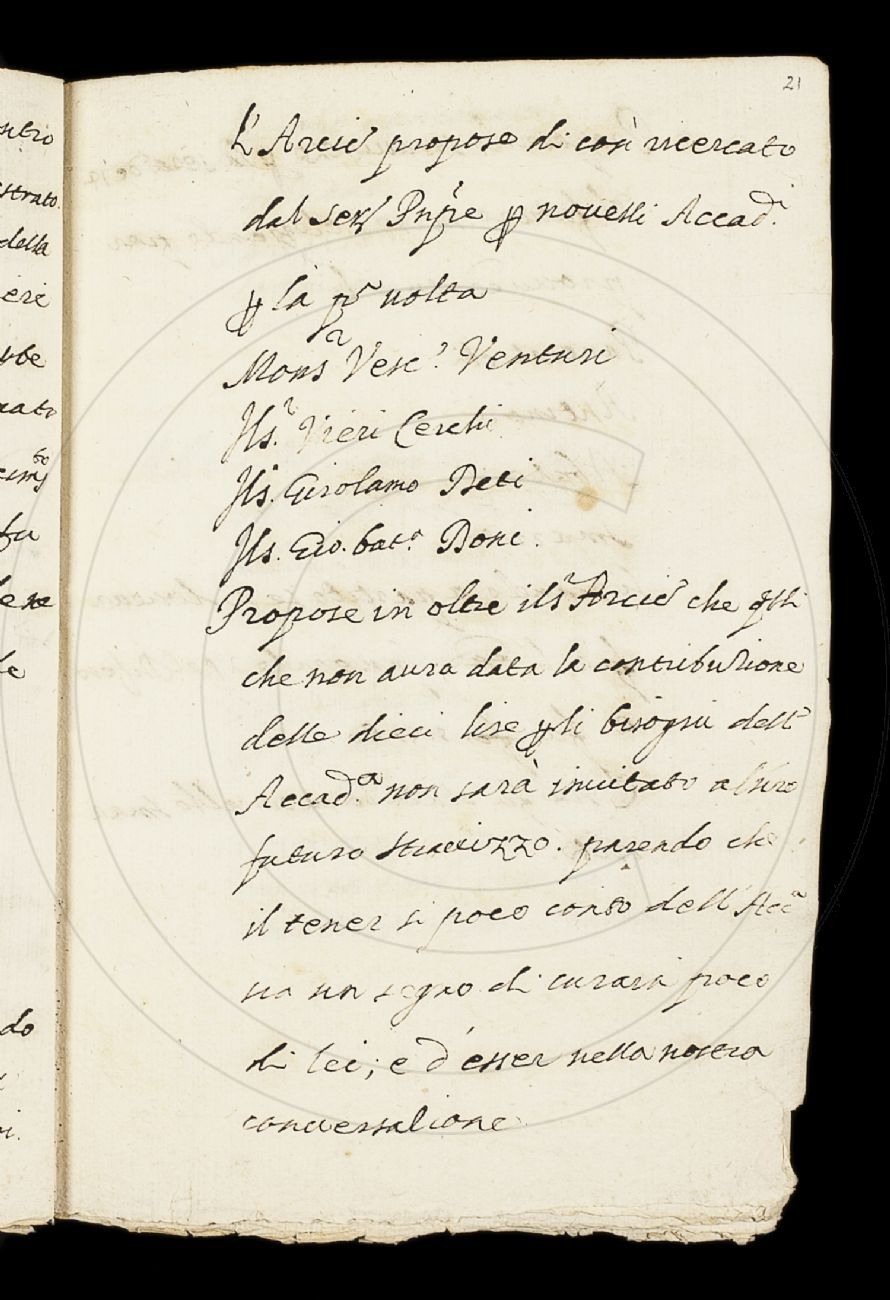 21
L'Arcie propose di così ricercato
dal Ser Pnpe p novelli Accad.i
p la pa uolta
Monsr Vesc.o Venturi
Il s.r Vieri Cerchi
Il s. Girolamo Beti
Il s. Gio. bat.a Boni.
Propose in oltre il sr Arcie che qlli
che non aura data la contribuzione
delle dieci lire p li bisogni dell'
Accad.a non sarà inuitato al
futuro strauizzo. parendo che
il tener si poco conto dell'Acca
sia un segno di curarsi poco
di lei; e d'esser nella nostra
conuersazione
ntro
strato.
della
ato
do